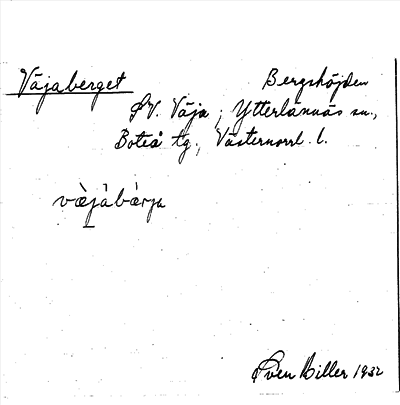 Väjaberget Bergshöjden
SV. Väja, Ytterlännäs sn.,
Boteå tg., Västernorrl. l.
væ̀jàbàrjа
Sven Biller 1932